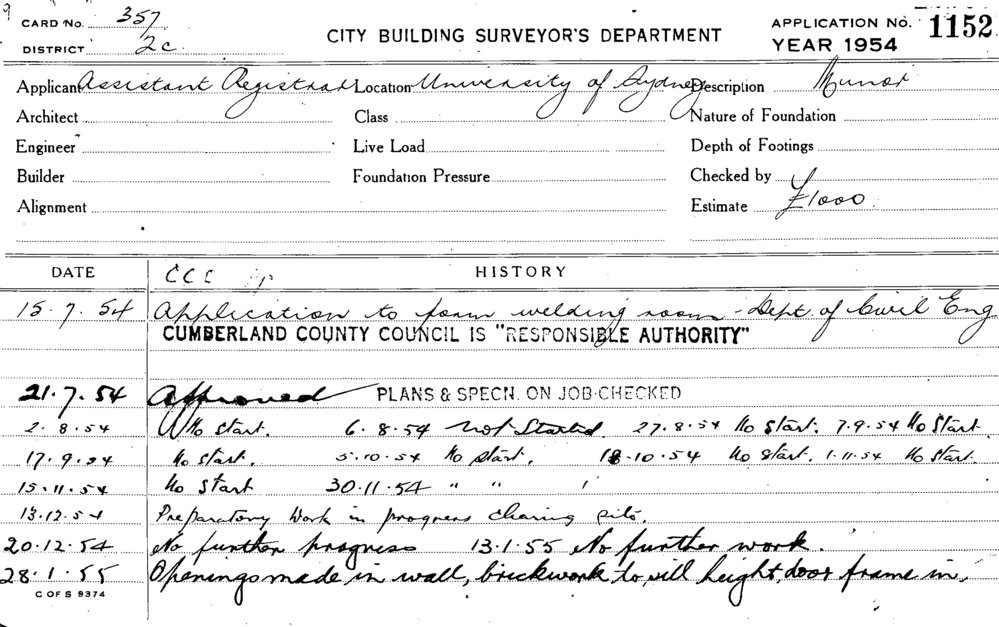 CARD No. 357
DISTRICT 2c
CITY BUILDING SURVEYOR'S DEPARTMENT
APPLICATION No. 1152
YEAR 1954
Applicant Assistant Registrar Location University of Sydney Description Minor
Architect Class Nature of Foundation
Engineer Live Load Depth of Footings
Builder Foundation Pressure Checked by
Alignment Estimate £1000
DATE CCC HISTORY
15.7.54 Application to form welding room - Dept. of Civil Eng
CUMBERLAND COUNTY COUNCIL IS "RESPONSIBLE AUTHORITY"
21.7.54 Approved PLANS & SPECN. ON JOB CHECKED
2.8.54 No start. 6.8.54 not Started. 27.8.54 No Start. 7.9.54 No Start.
17.9.54 No start. 5.10.54 No start. 18.10.54 No Start. 1.11.54 No Start.
15.11.54 No Start 30.11.54 " "
13.12.54 Preparatory Work in progress site.
20.12.54 No further progress 13.1.55 No further work.
28.1.55 Openings made in wall, brickwork to sill height, door frame in.
C OF S 9374